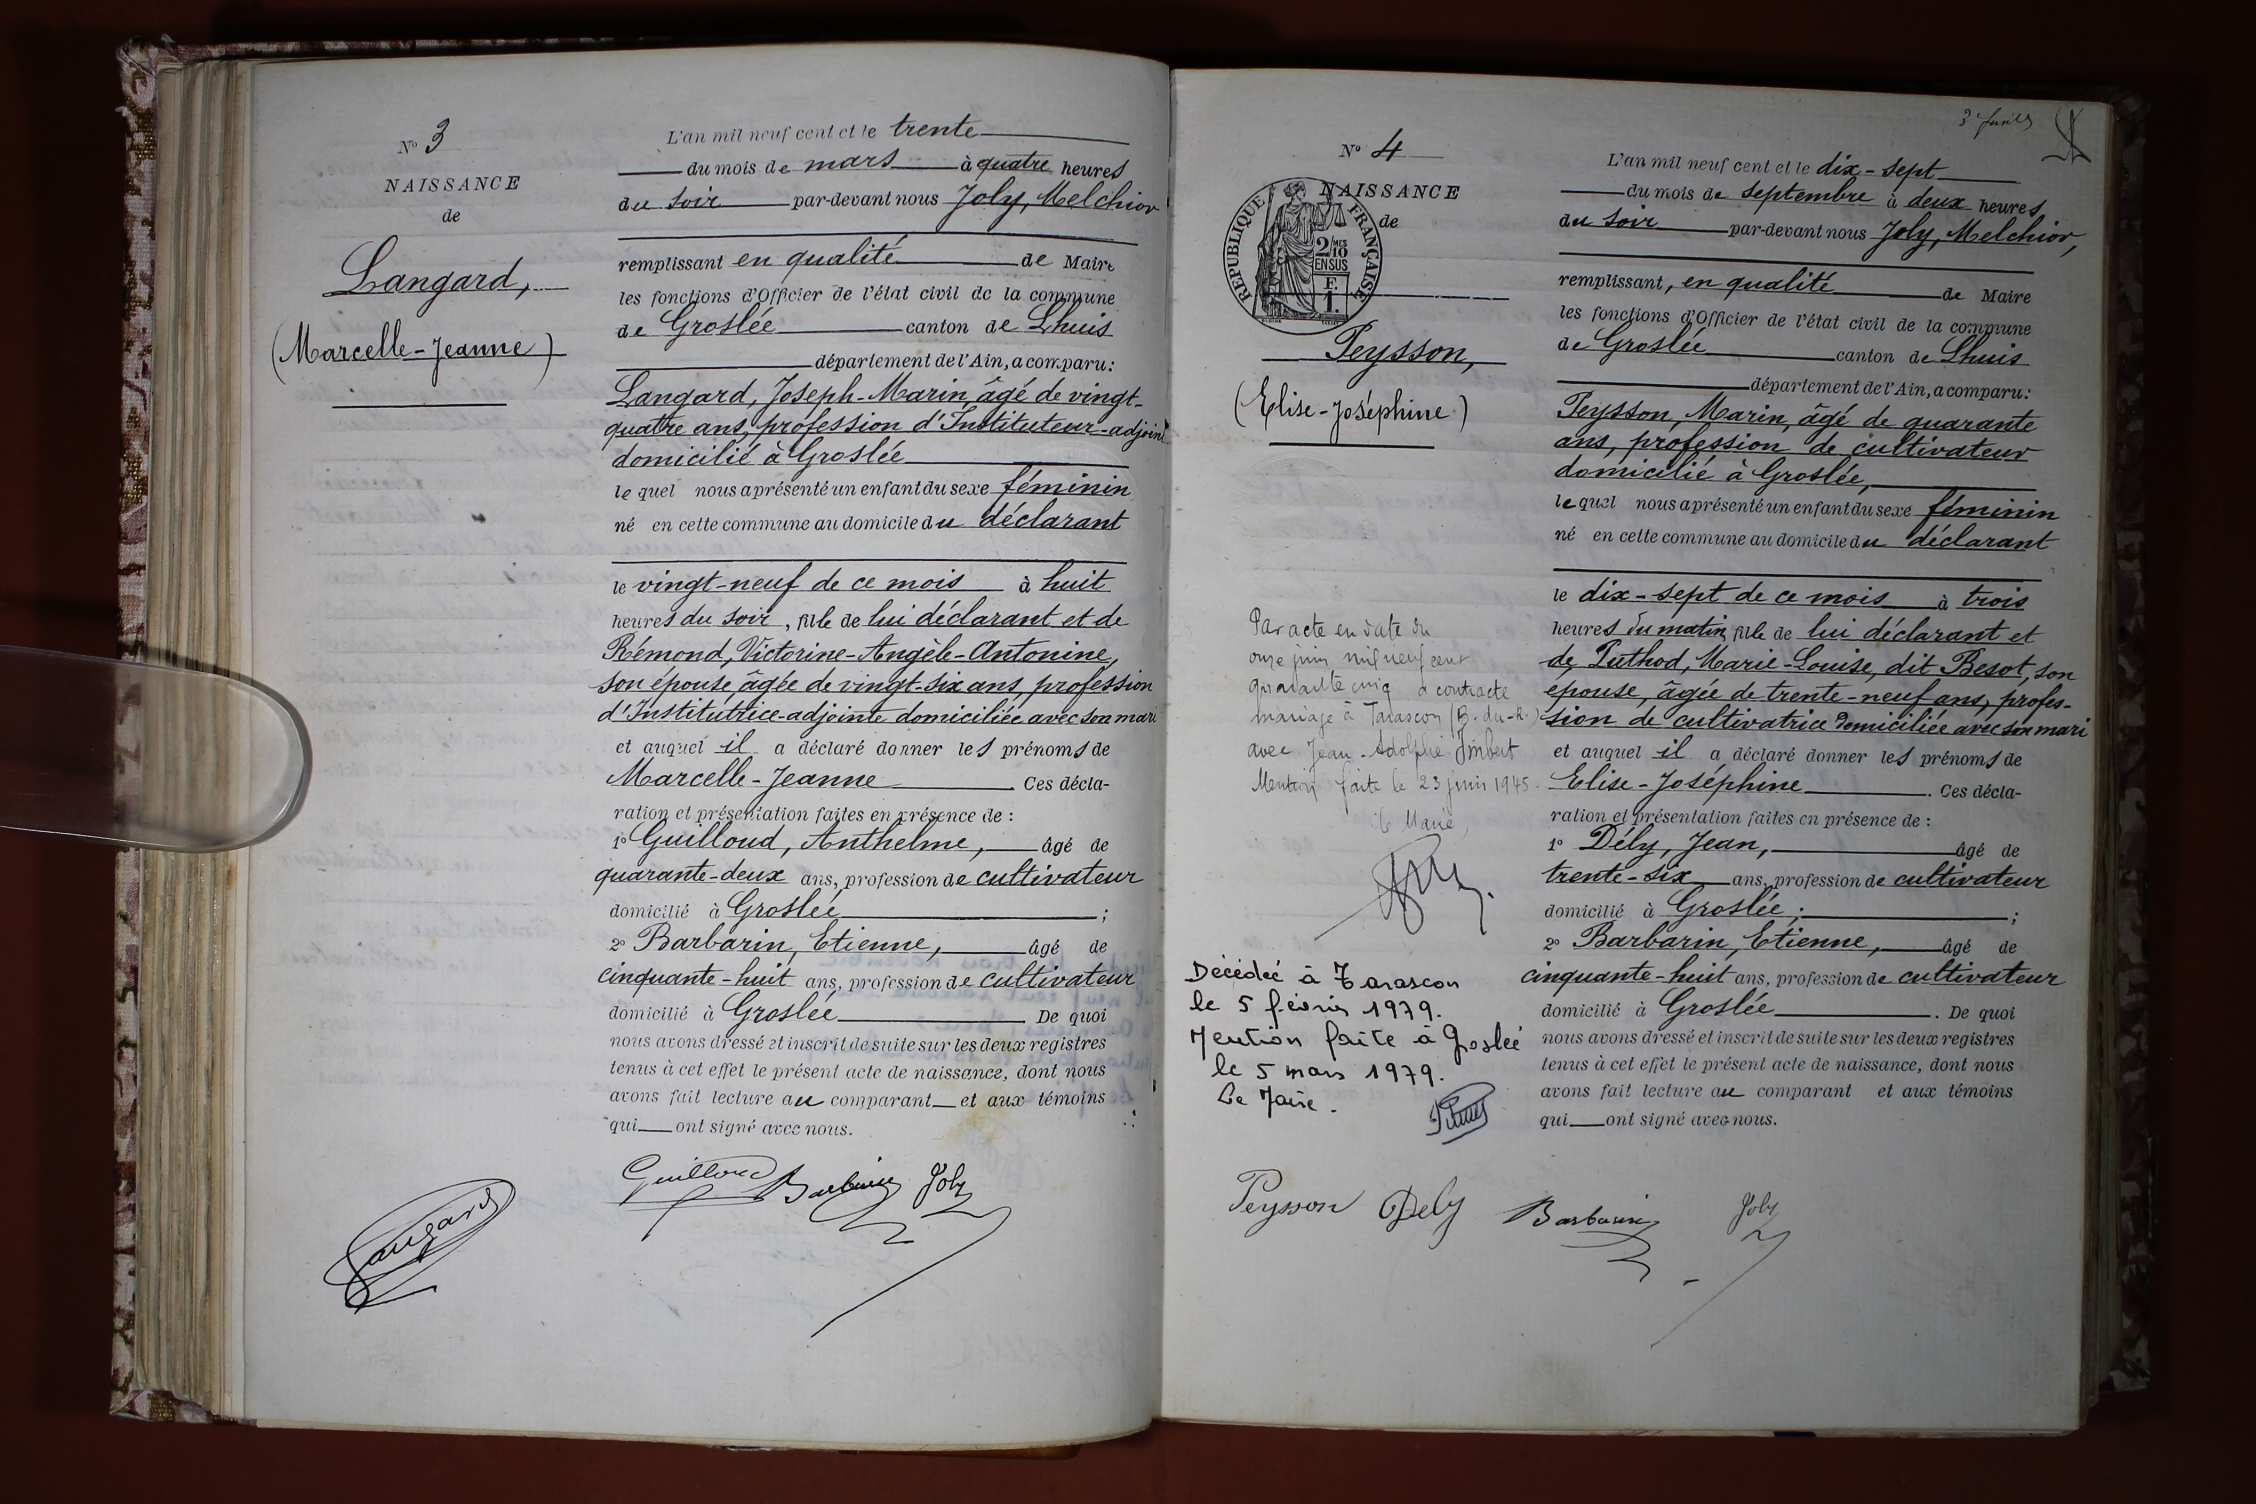 N° 3
NAISSANCE
de
Langard,
(Marcelle-Jeanne)
L'an mil neuf cent et le trente
du mois de mars à quatre heures
du soir par-devant nous Joly, Melchior
remplissant en qualité de Maire
les fonctions d'Officier de l'état civil de la commune
de Groslée canton de Lhuis
département de l'Ain, a comparu:
Langard, Joseph-Marin, âgé de vingt-
quatre ans, profession d'Instituteur-adjoint
domicilié à Groslée
lequel nous a présenté un enfant du sexe féminin
né en cette commune au domicile du déclarant
le vingt-neuf de ce mois à huit
heures du soir, fille de lui déclarant et de
Rémond, Victorine-Angèle-Antonine,
son épouse, âgée de vingt-six ans, profession
d'Institutrice-adjointe domiciliée avec son mari
et auquel il a déclaré donner les prénoms de
Marcelle-Jeanne. Ces décla-
ration et présentation faites en présence de :
1° Guilloud, Anthelme, âgé de
quarante-deux ans, profession de cultivateur
domicilié à Groslée ;
2° Barbarin, Etienne, âgé de
cinquante-huit ans, profession de cultivateur
domicilié à Groslée De quoi
nous avons dressé et inscrit de suite sur les deux registres
tenus à cet effet le présent acte de naissance, dont nous
avons fait lecture au comparant et aux témoins
qui ont signé avec nous.
Guilloud Barbarin Joly
Langard
N° 4
NAISSANCE
de
RÉPUBLIQUE FRANÇAISE
2/10 MES
EN SUS
F.
1.
Peysson,
(Elise-Joséphine)
L'an mil neuf cent et le dix-sept
du mois de septembre à deux heures
du soir par-devant nous Joly, Melchior,
remplissant, en qualité de Maire
les fonctions d'Officier de l'état civil de la commune
de Groslée canton de Lhuis
département de l'Ain, a comparu:
Peysson, Marin, âgé de quarante
ans, profession de cultivateur
domicilié à Groslée,
lequel nous a présenté un enfant du sexe féminin
né en cette commune au domicile du déclarant
le dix-sept de ce mois à trois
heures du matin, fille de lui déclarant et
de Puthod, Marie-Louise, dit Besot, son
épouse, âgée de trente-neuf ans, profes-
sion de cultivatrice domiciliée avec son mari
et auquel il a déclaré donner les prénoms de
Elise-Joséphine. Ces décla-
ration et présentation faites en présence de :
1° Dély, Jean, âgé de
trente-six ans, profession de cultivateur
domicilié à Groslée ; ;
2° Barbarin, Etienne, âgé de
cinquante-huit ans, profession de cultivateur
domicilié à Groslée. De quoi
nous avons dressé et inscrit de suite sur les deux registres
tenus à cet effet le présent acte de naissance, dont nous
avons fait lecture au comparant et aux témoins
qui ont signé avec nous.
Par acte en date du
onze juin mil neuf cent
quarante cinq a contracté
mariage à Tarascon (B.-du-R.)
avec Jean-Adolphe Imbert
Mention faite le 23 juin 1945.
le Maire,
Décédée à Tarascon
le 5 février 1979.
Mention faite à Groslée
le 5 mars 1979.
Le Maire.
Peysson Dely Barbarin Joly